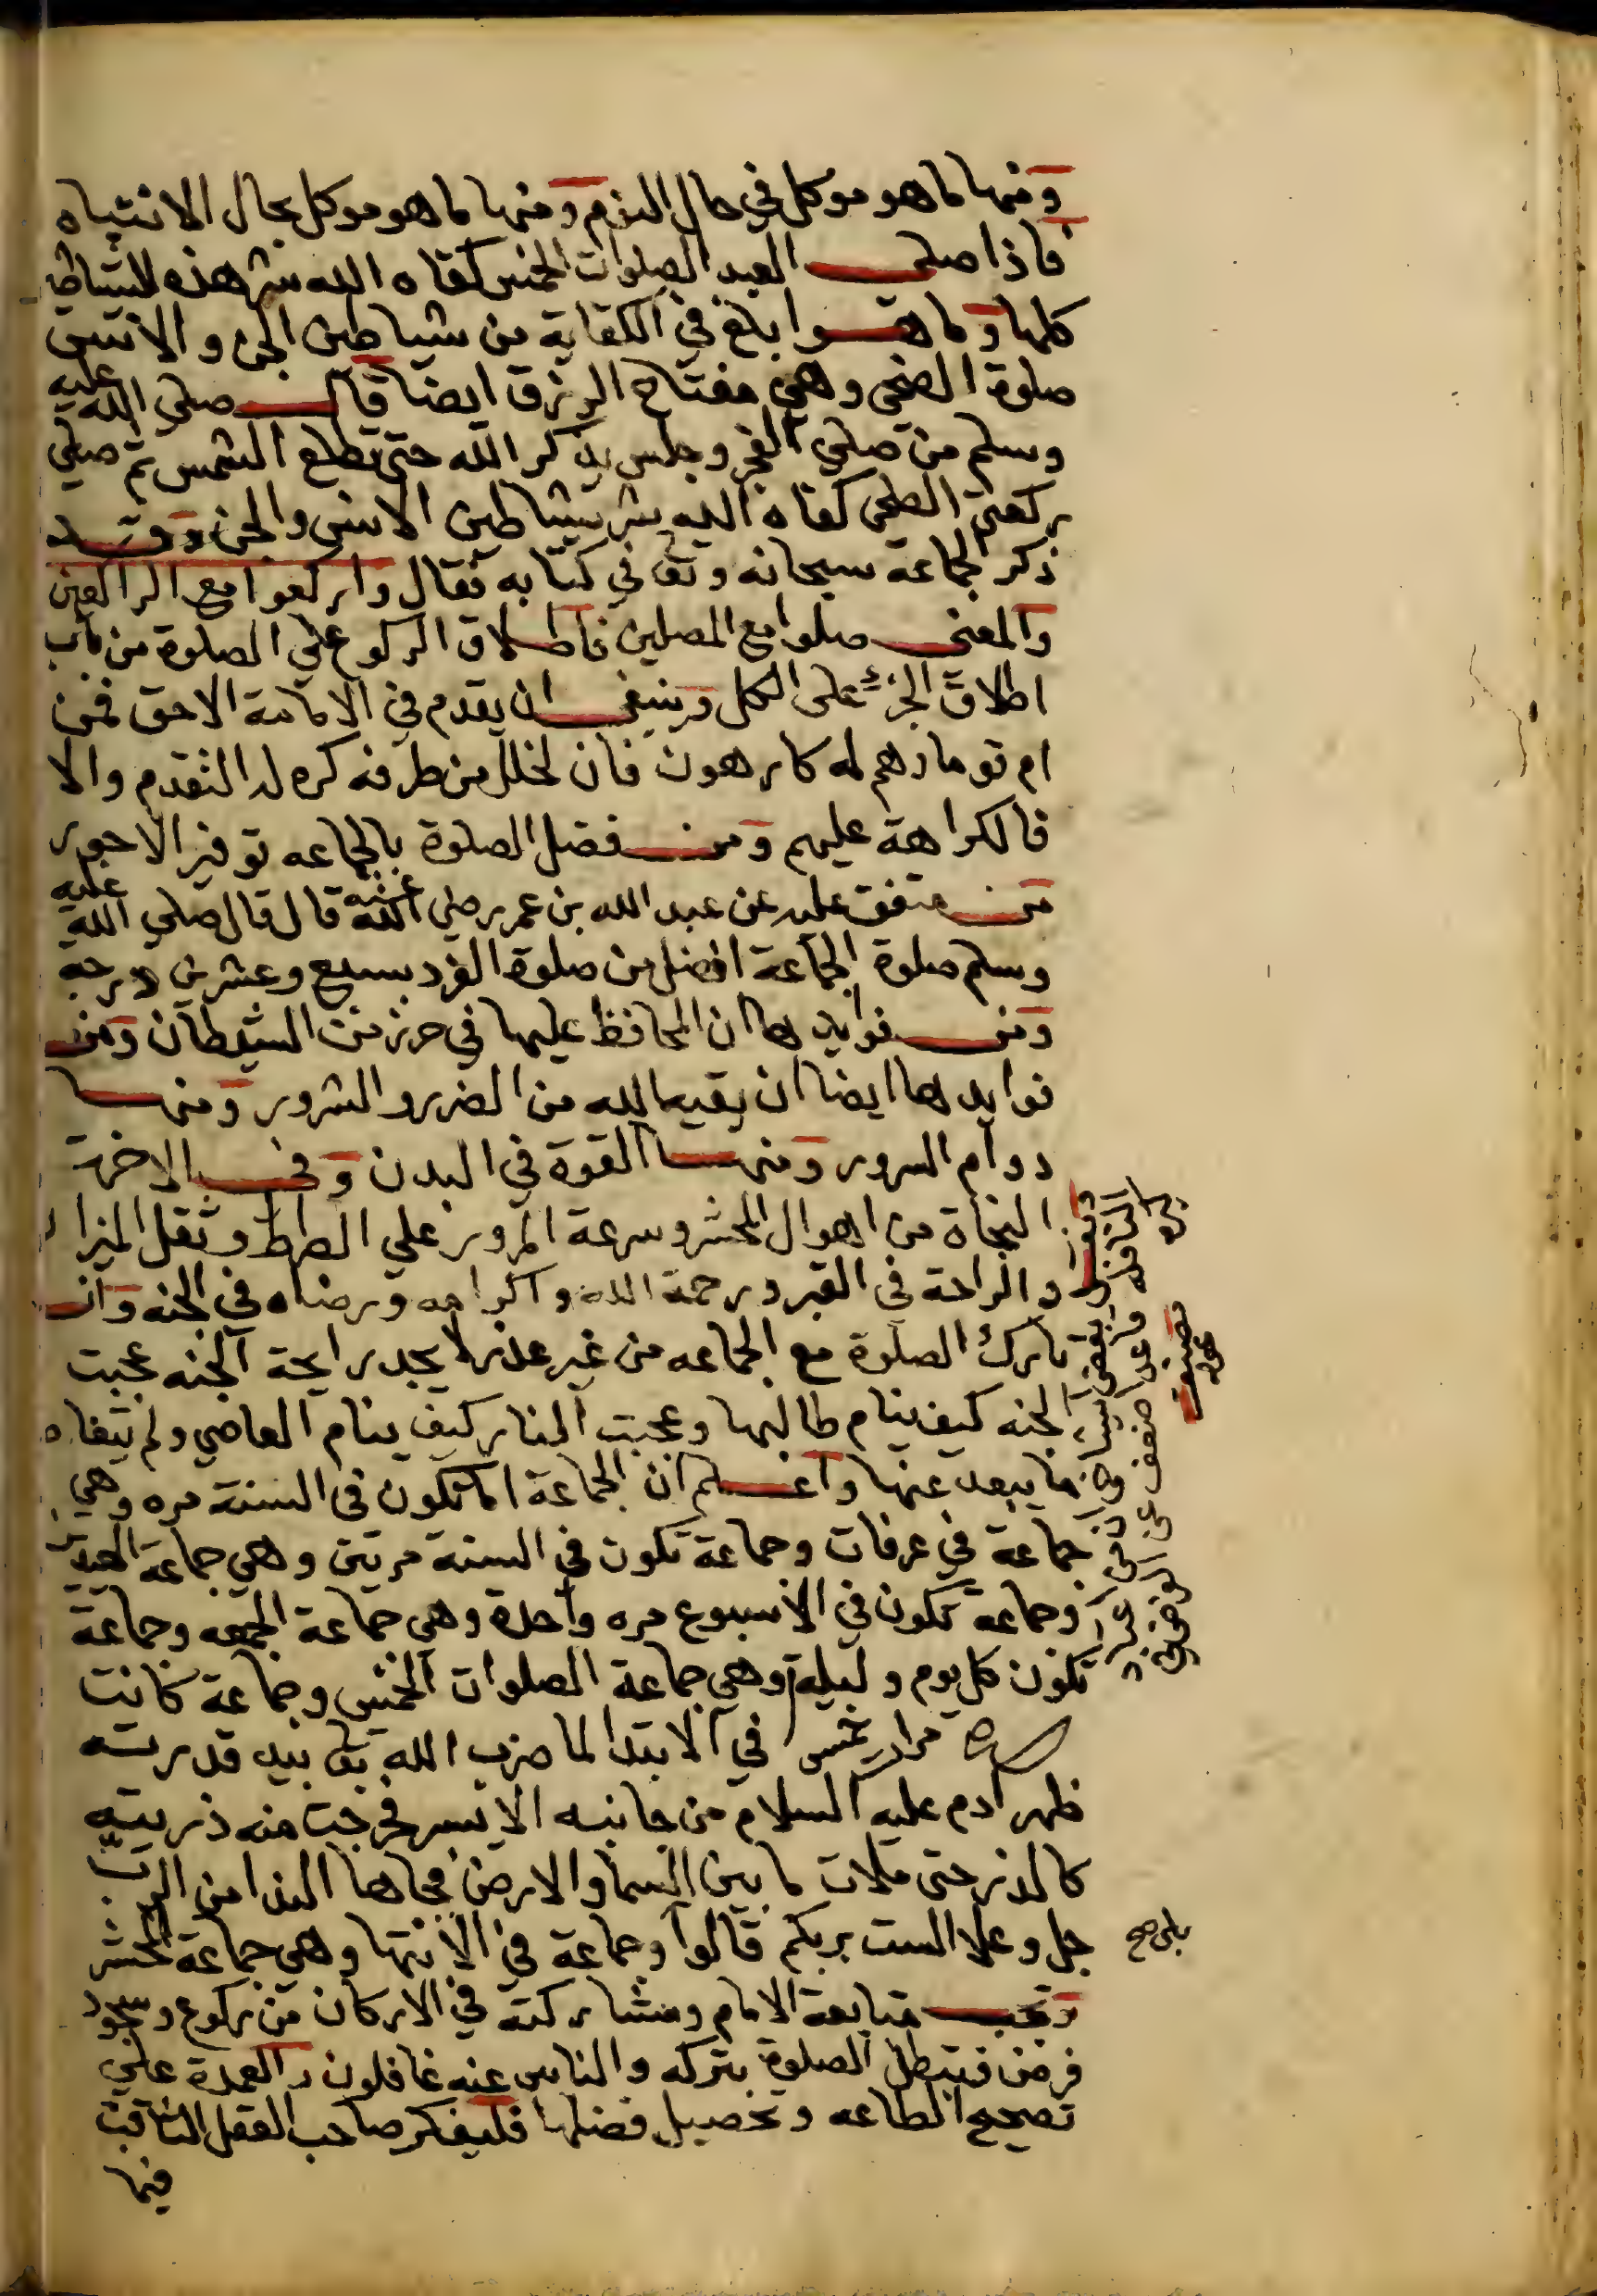 ومنها ما هو موكل في حال النوم ومنها ما هو موكل بحال الانتباه
فاذا صلى العبد الصلوات الخمس كفاه الله شر هذه الشياطين
كلها وما هو ابلغ في الكفاية من شياطين الجن والانس
صلوة الضحى وهي مفتاح الرزق ايضا قال صلى الله عليه
وسلم من صلى الفجر وجلس يذكر الله حتى تطلع الشمس ثم صلي
ركعتي الضحى كفاه الله شر شياطين الانس والجن وقد
ذكر الجماعة سبحانه وتع في كتابه فقال واركعوا مع الراكعين
والمعنى صلوا مع المصلين فاطلاق الركوع علي الصلوة من باب
اطلاق الجزء على الكل وينبغي ان يقدم في الامامة الاحق فمن
ام قوما وهم له كارهون فان لخلل من طرفه كره له التقدم والا
فالكراهة عليهم ومن فضل الصلوة بالجماعه توفير الاجور
من متفق عليه عن عبد الله بن عمر رضي الله عنه قال قال صلي الله عليه
وسلم صلوة الجماعة افضل من صلوة الفرد بسبع وعشرين درجه
ومن فوايدها ان المحافظ عليها في حرز من الشيطان ومن
فوايدها ايضا ان يقيه الله من الضرر والشرور ومنها
دوام السرور ومنها القوة في البدن وفي الاخرة
النجاة من اهوال المحشر وسرعة المرور علي الصراط وثقل الميزان
والراحة في القبر ورحمة الله واكرامه ورضاه في الجنه وان
تارك الصلوة مع الجماعه من غير عذر لا يجد رايحة الجنه عجبت
الجنه كيف ينام طالبها وعجبت النار كيف ينام العاصي ولم
ما يبعد عنها واعلم ان الجماعة اما تكون في السنة مره وهي
جماعة في عرفات وجماعة تكون في السنة مرتين وهي جماعة العيد
وجماعة تكون في الاسبوع مره واحدة وهي جماعة الجمعه وجماعة
تكون كل يوم وليلة وهي جماعة الصلوات الخمس وجماعة كانت
مرار خمس
في الابتدا لما ضرب الله تع بيد قدرته
ظهر ادم عليه السلام من جانبه الايسر فخرجت منه ذريته
كالذر حتى ملات ما بين السما والارض فجاها الندا من الرب
جل وعلا الست بربكم قالوا وجماعة في الانتها وهي جماعة المحشر
بلى صح
وتجب متابعة الامام ومشاركته في الاركان من ركوع وسجود
فرض فتبطل الصلوة بتركه والناس عنه غافلون والعمدة علي
تصحيح الطاعه وتحصيل فضلها فليفكر صاحب العقل الثاقب
فيما